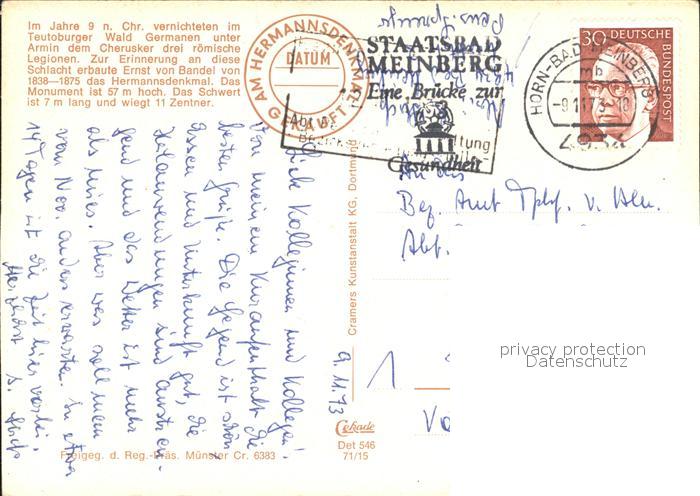 Im Jahre 9 n. Chr. vernichteten im
Teutoburger Wald Germanen unter
Armin dem Cherusker drei römische
Legionen. Zur Erinnerung an diese
Schlacht erbaute Ernst von Bandel von
1838—1875 das Hermannsdenkmal. Das
Monument ist 57 m hoch. Das Schwert
ist 7 m lang und wiegt 11 Zentner.
AM HERMANNSDENKMAL
DATUM
GEKAUFT
STAATSBAD
MEINBERG
Eine Brücke zur
Gesundheit
HORN-BAD MEINBERG
mb
-9.11.73.-18
4934
30 DEUTSCHE
BUNDESPOST
Liebe Kolleginnen und Kollegen!
Von meinem Kuraufenthalt die
besten Grüße. Die Gegend ist schön
Essen und Unterkunft gut, die
Kuranwendungen sind anstren-
gend und das Wetter ist mehr
als mies. Aber was soll man
vom Nov. anders erwarten. In etwa
14 Tagen ist die Zeit hier vorbei.
9.11.73
An das
Bez. Amt Tphf. v. Bln.
Abt.
1
Cramers Kunstanstalt KG, Dortmund
Cekade
Det 546
71/15
Freigeg. d. Reg.-Präs. Münster Cr. 6383
privacy protection
Datenschutz